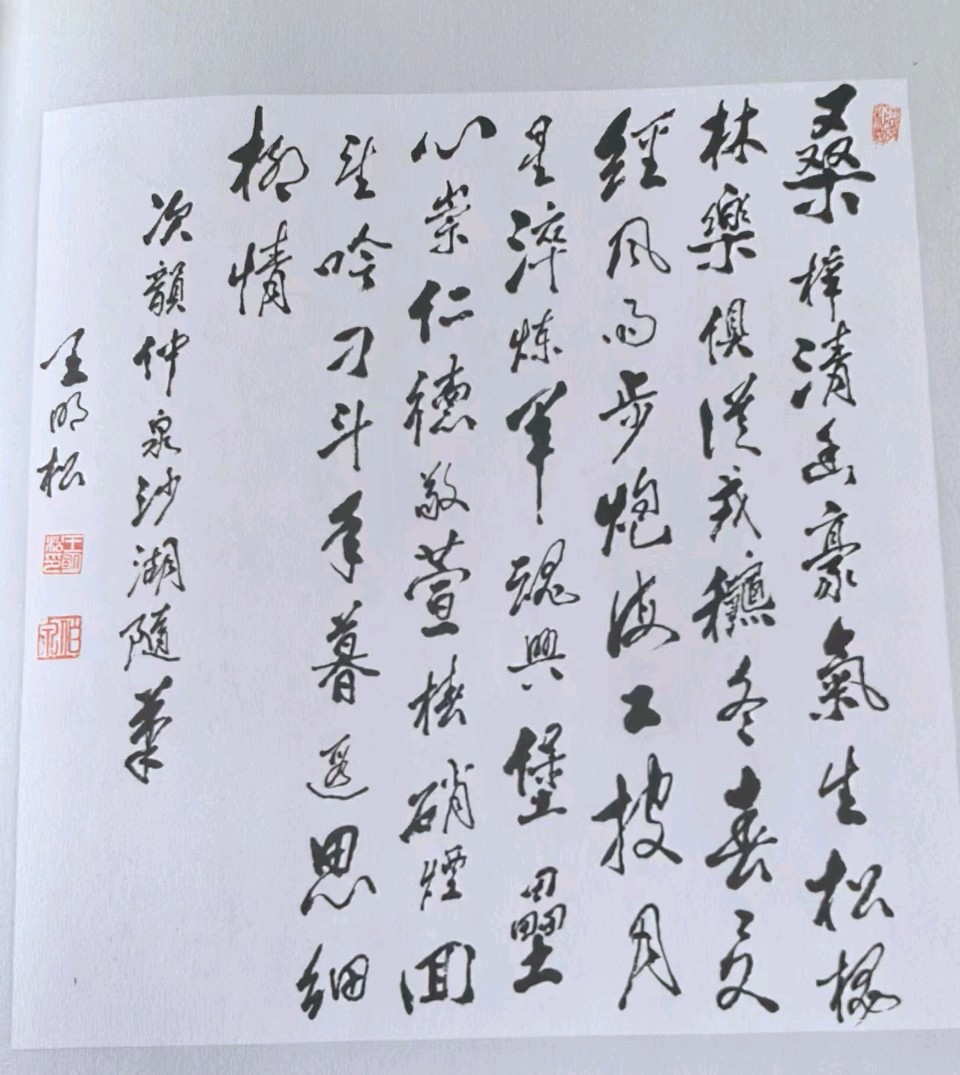 桑梓清幽豪氣生松
林樂俱從戎龝冬春夏
經風雨步炮海工披月
星淬煉軍魂興堡壘
心崇仁德敬萱椿硝煙回
望吟刁斗年暮遥思細
柳情
次韻仲泉沙湖隨筆
王明松